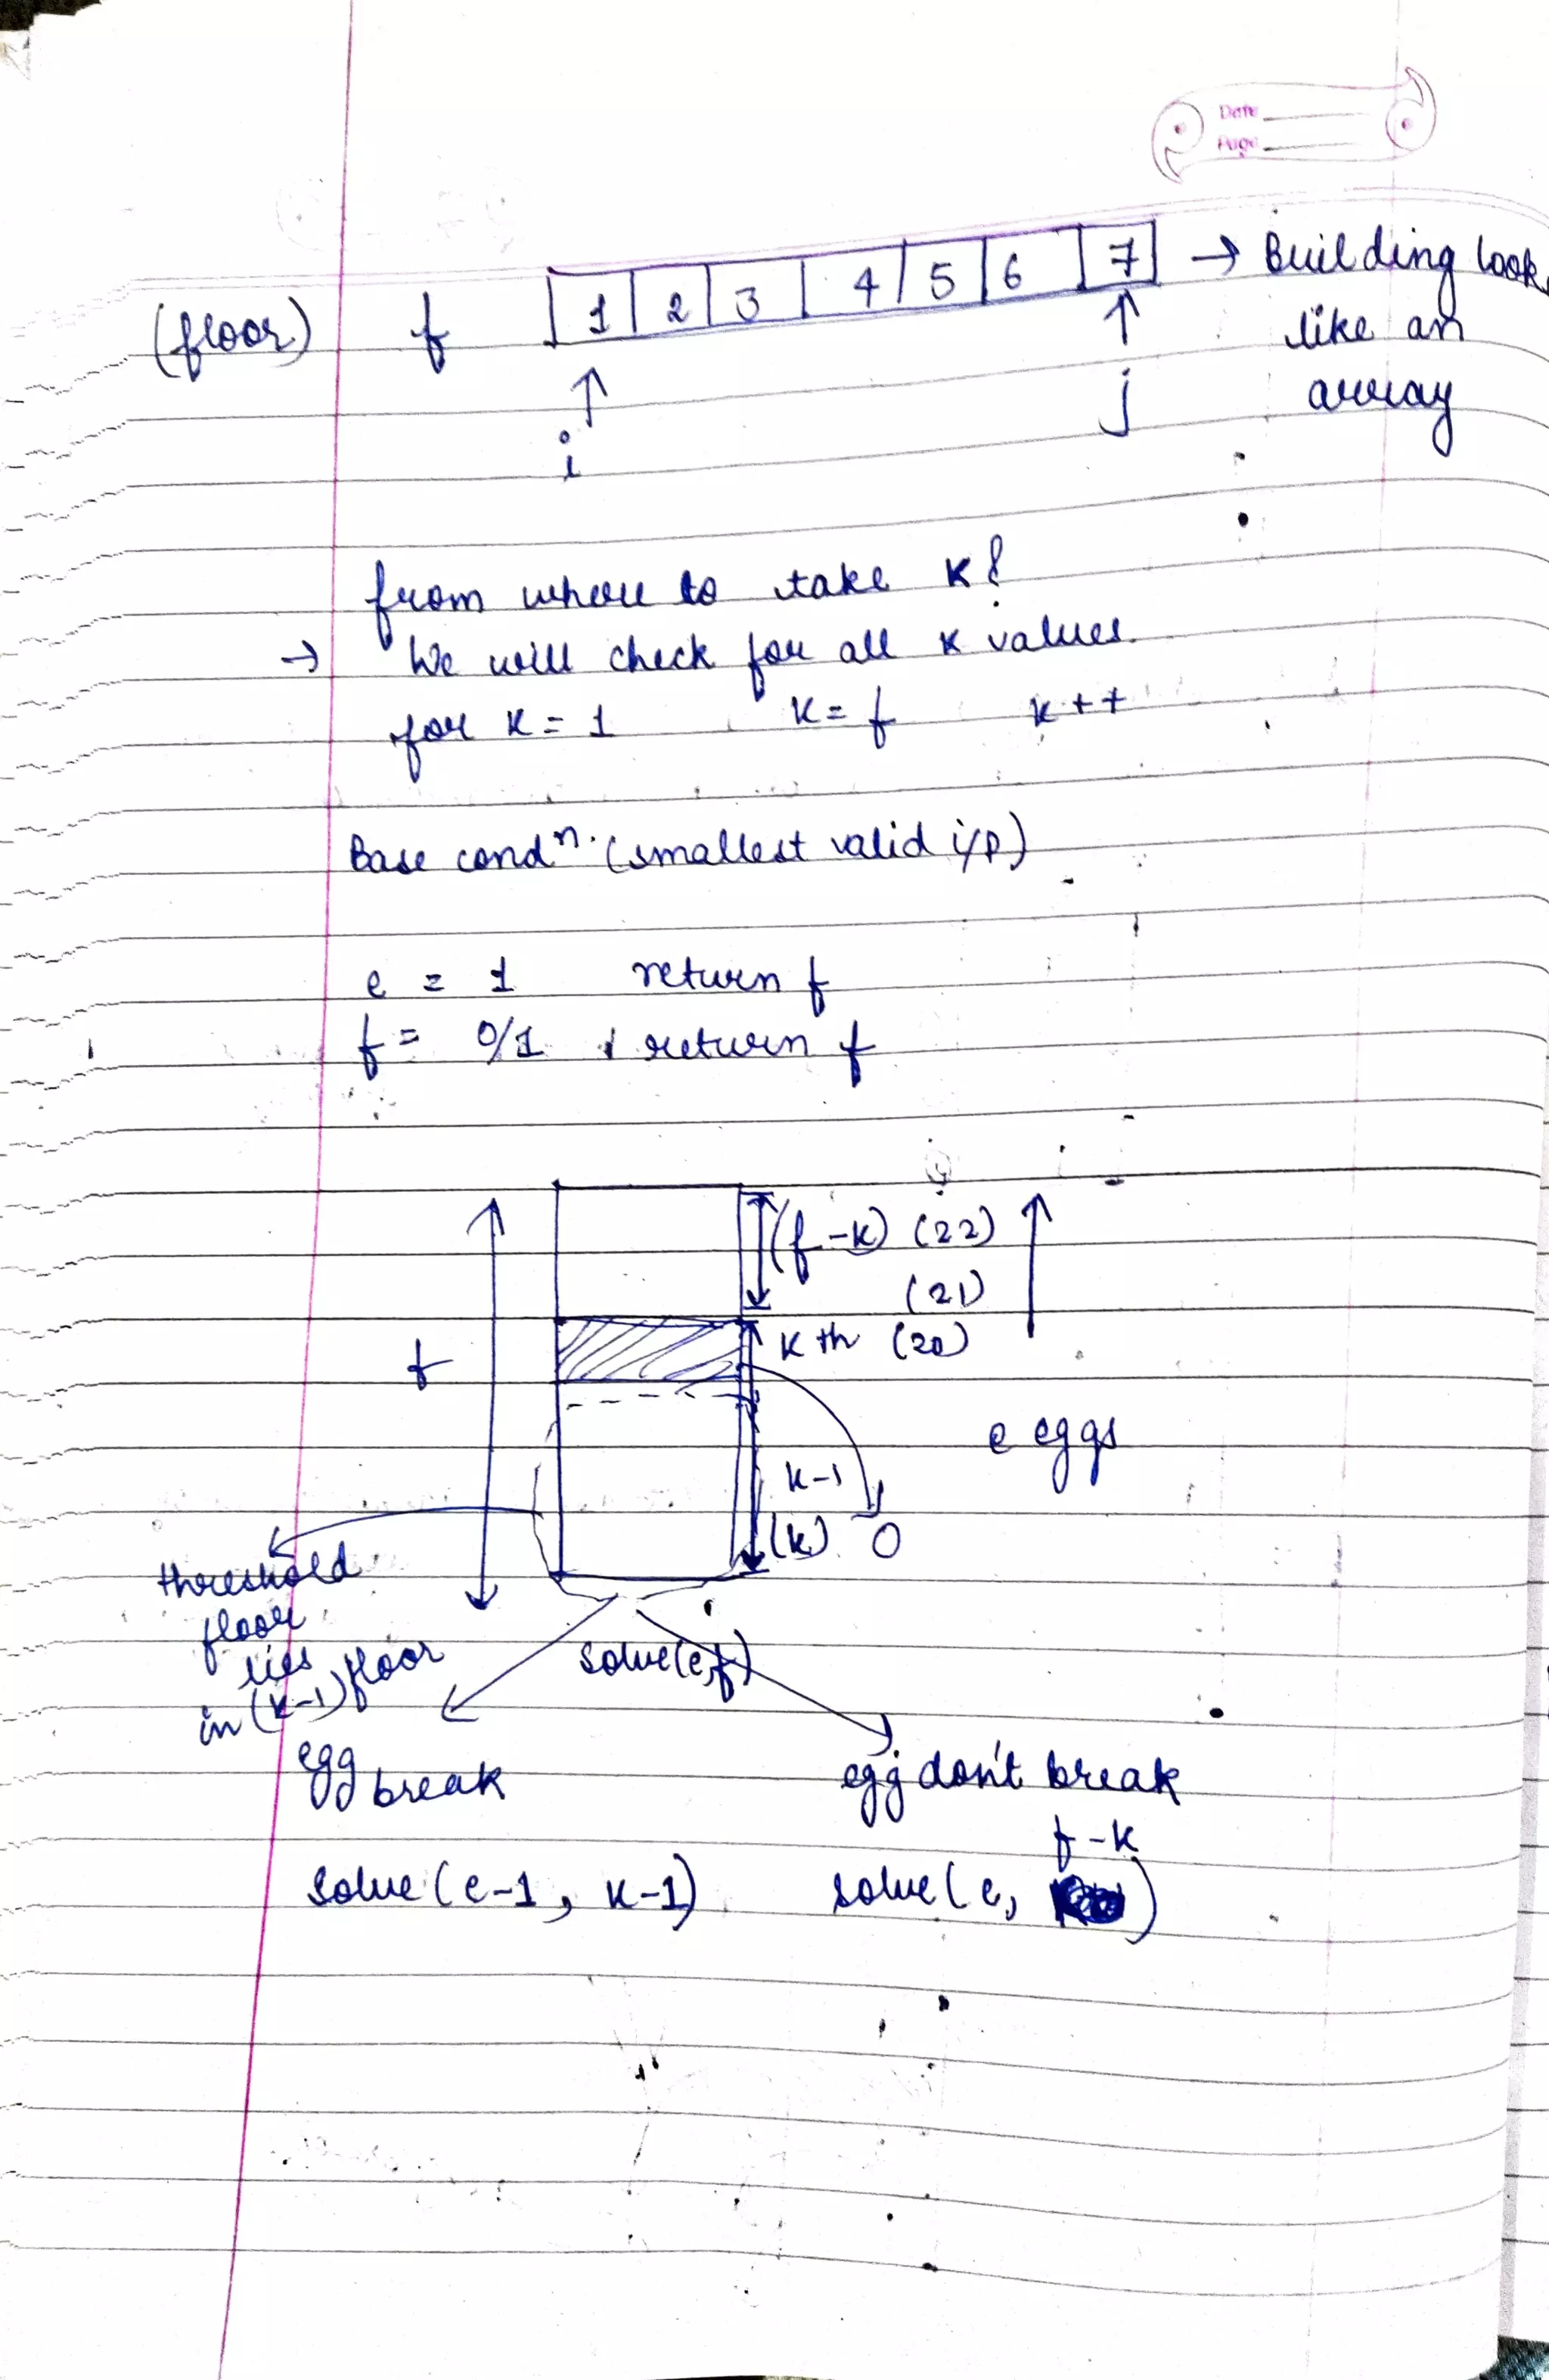 Date
Page
(floor) f 1 2 3 4 5 6 7 → Building look
like an
array
i j
from where to take K?
→ We will check for all K values.
for K = 1 K = f K++
Base condⁿ. (smallest valid i/p)
e = 1 return f
f = 0/1 return f
(f-K) (22)
(21)
K th (20)
f
e eggs
K-1
(K) O
threshold
floor
lies
in (K-1) floor
solve(e,f)
egg break
egg don't break
f-K
solve(e-1, K-1) solve(e, )